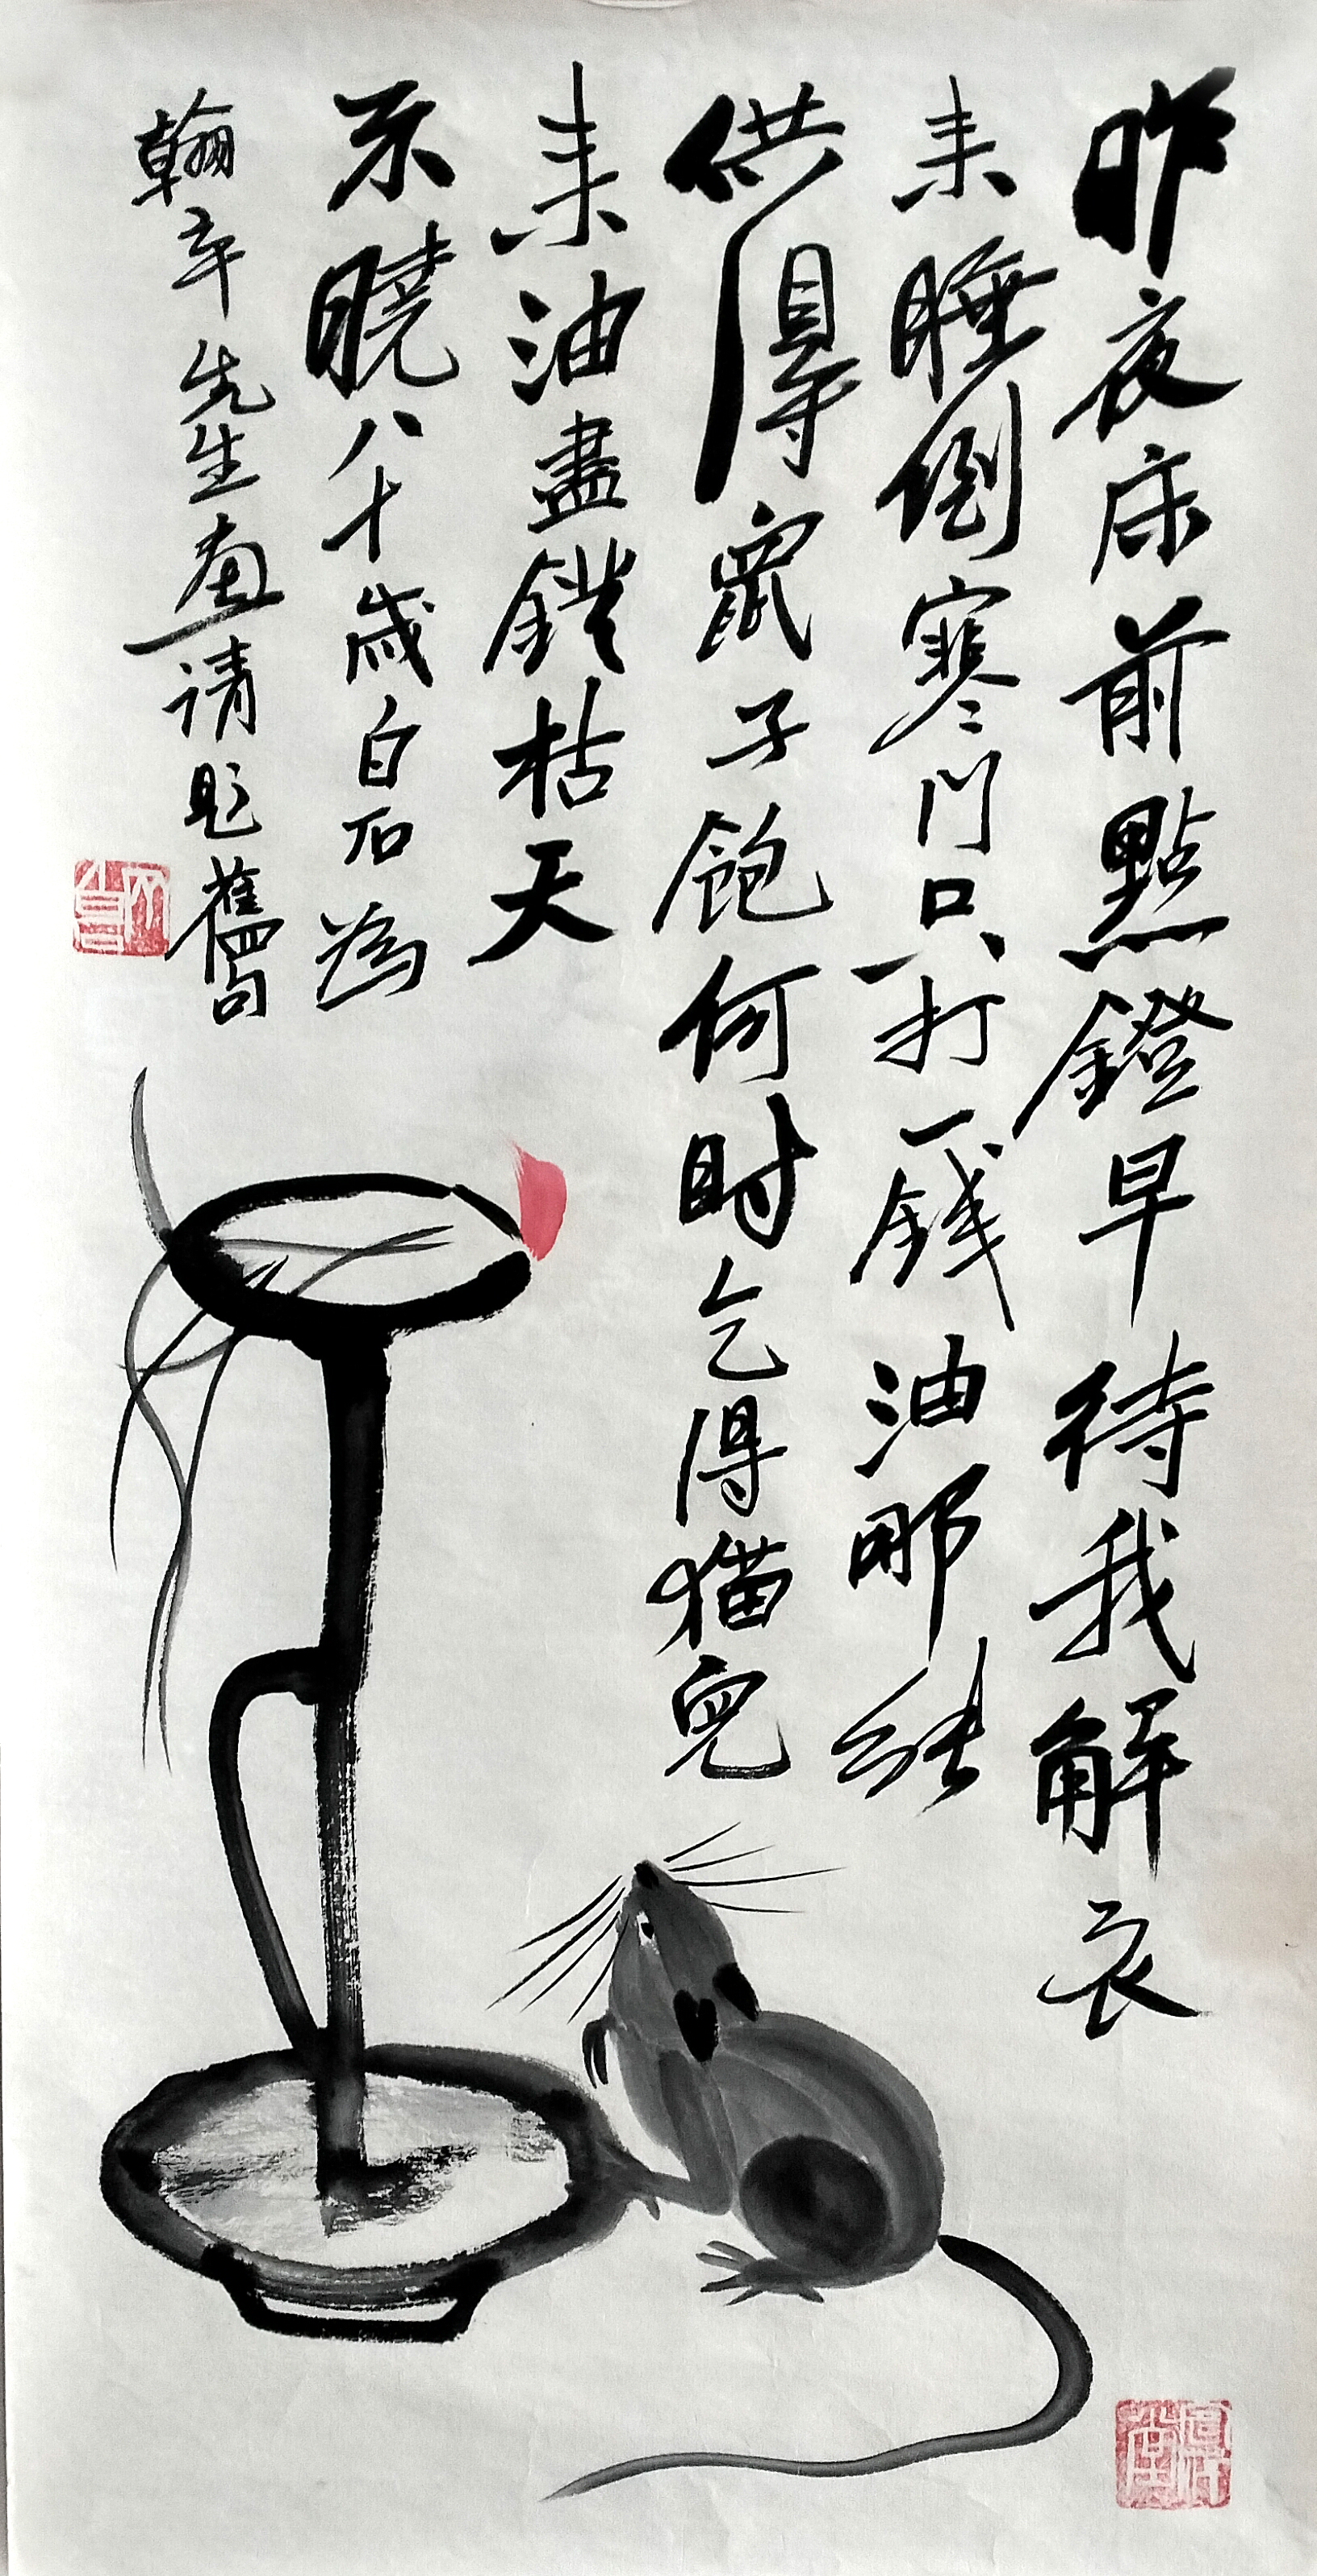 昨夜床前點鐙早待我解衣
来睡倒寒門只打一錢油那能
供得鼠子飽何时乞得猫兒
来油盡鐙枯天
不曉八十歲白石為
翰先生畫请題舊四句